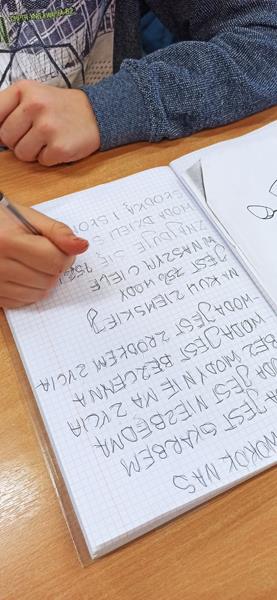 WOKÓŁ NAS
JEST SKARBEM
JEST NIEZBĘDNA
BEZ WODY NIE MA ŻYCIA
WODA JEST BEZCENNA
-WODA JEST ŹRÓDŁEM ŻYCIA
NA KULI ZIEMSKIEJ
JEST 75% WODY
W NASZYM CIELE 75%
ZNAJDUJE SIĘ
WODA DZIELI S
SŁODKĄ I SŁON